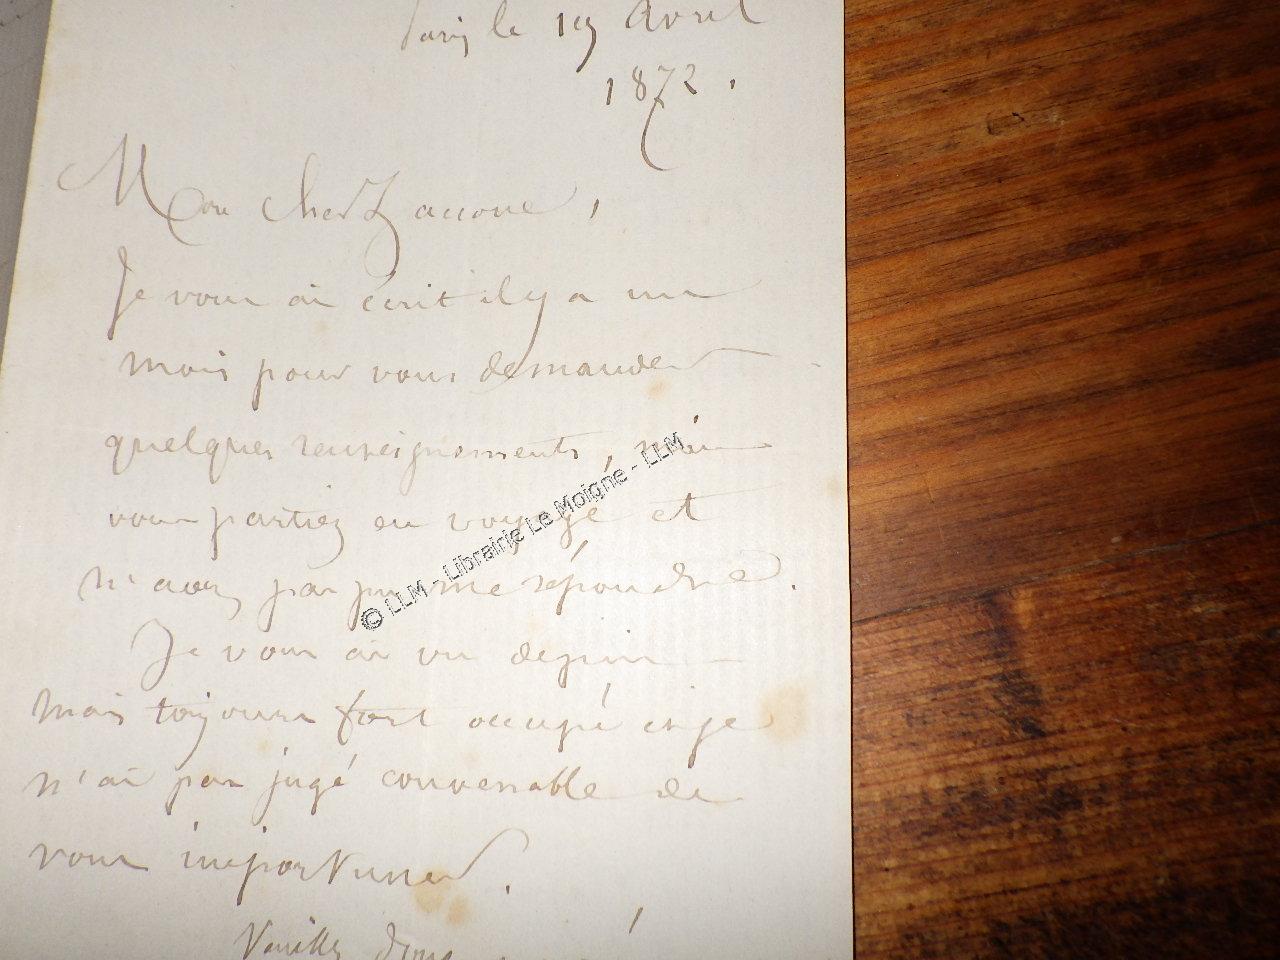 Paris le 19 Avril
1872.
Mon cher Zaccone,
Je vous ai écrit il y a un
mois pour vous demander
quelques renseignements, mais
vous partiez en voyage et
n'avez pas pu me répondre.
Je vous ai vu depuis
mais toujours fort occupé et je
n'ai pas jugé convenable de
vous importuner.
Veuillez donc
© LLM - Librairie Le Moigne - LLM